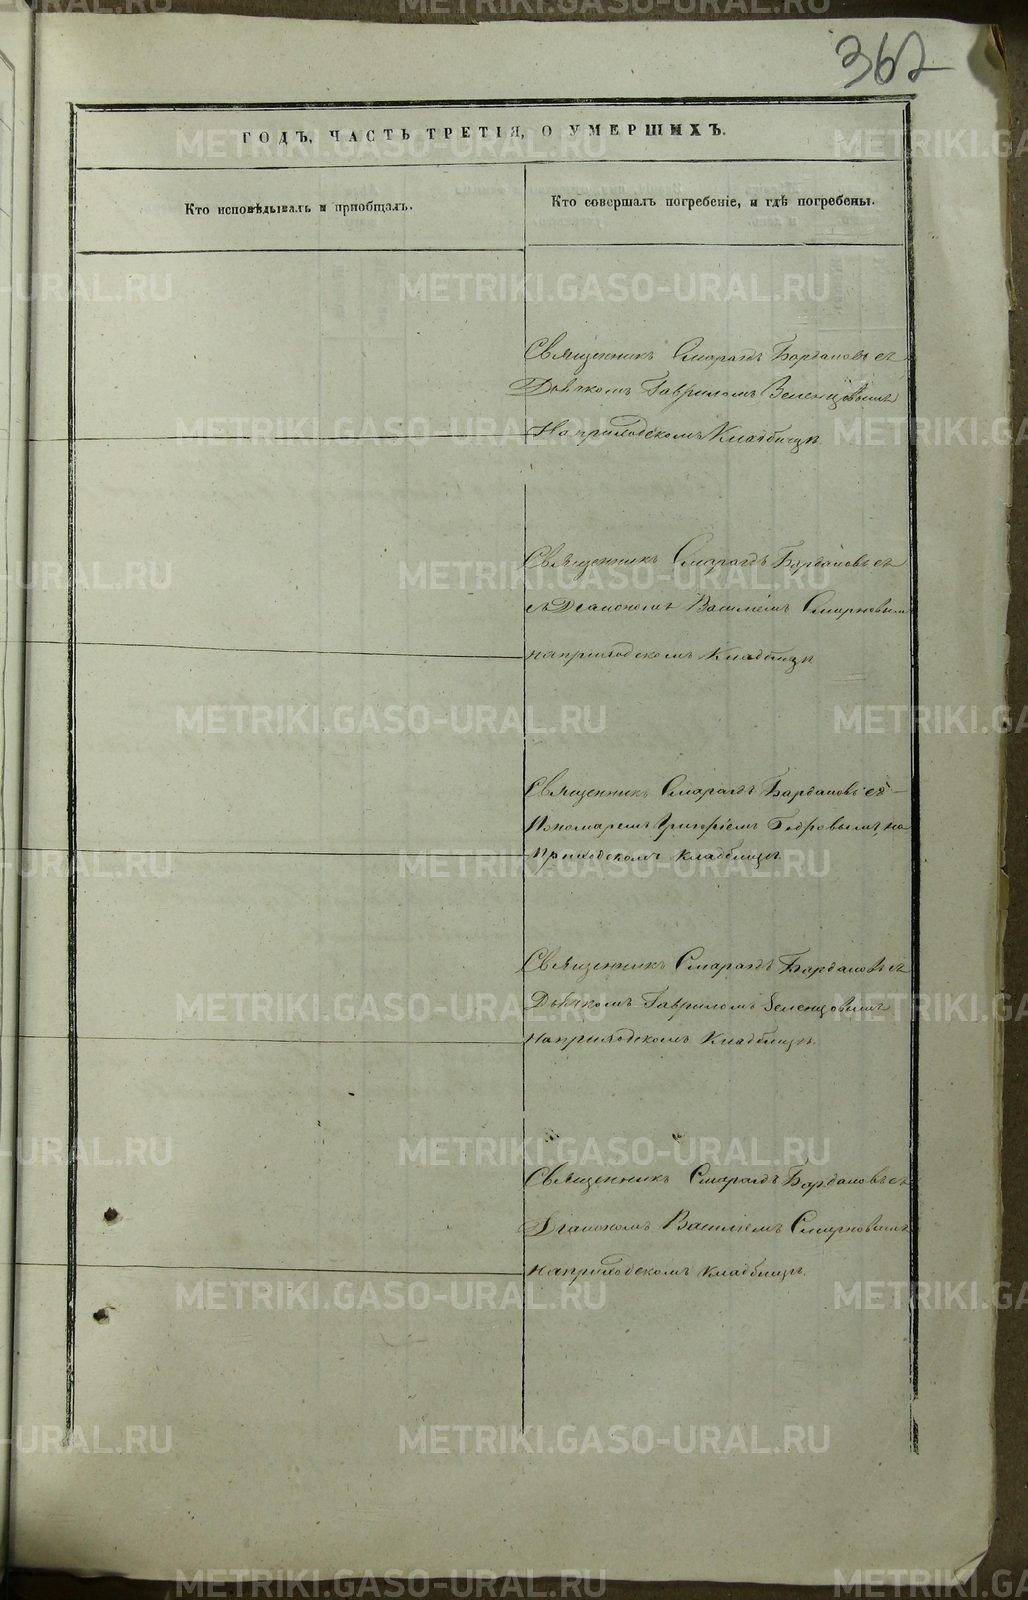 362
ГОДЪ, ЧАСТЬ ТРЕТІЯ, О УМЕРШИХЪ.
Кто исповѣдывалъ и пріобщалъ.
Кто совершалъ погребеніе, и гдѣ погребены.
Священникъ Смарагдъ Бардаковъ съ
Дьячкомъ Гавриломъ Зеленцовымъ
На приходскомъ Кладбищѣ
Священникъ Смарагдъ Бардаковъ съ
съ Діакономъ Василіемъ Смирновымъ
на приходскомъ Кладбищѣ
Священникъ Смарагдъ Бардаковъ съ
Пономаремъ Григоріемъ на
приходскомъ кладбищѣ
Священникъ Смарагдъ Бардаковъ съ
Дьячкомъ Гавриломъ Зеленцовымъ
На приходскомъ Кладбищѣ.
Священникъ Смарагдъ Бардаковъ съ
Діакономъ Василіемъ Смирновымъ
на приходскомъ кладбищѣ.
METRIKI.GASO-URAL.RU